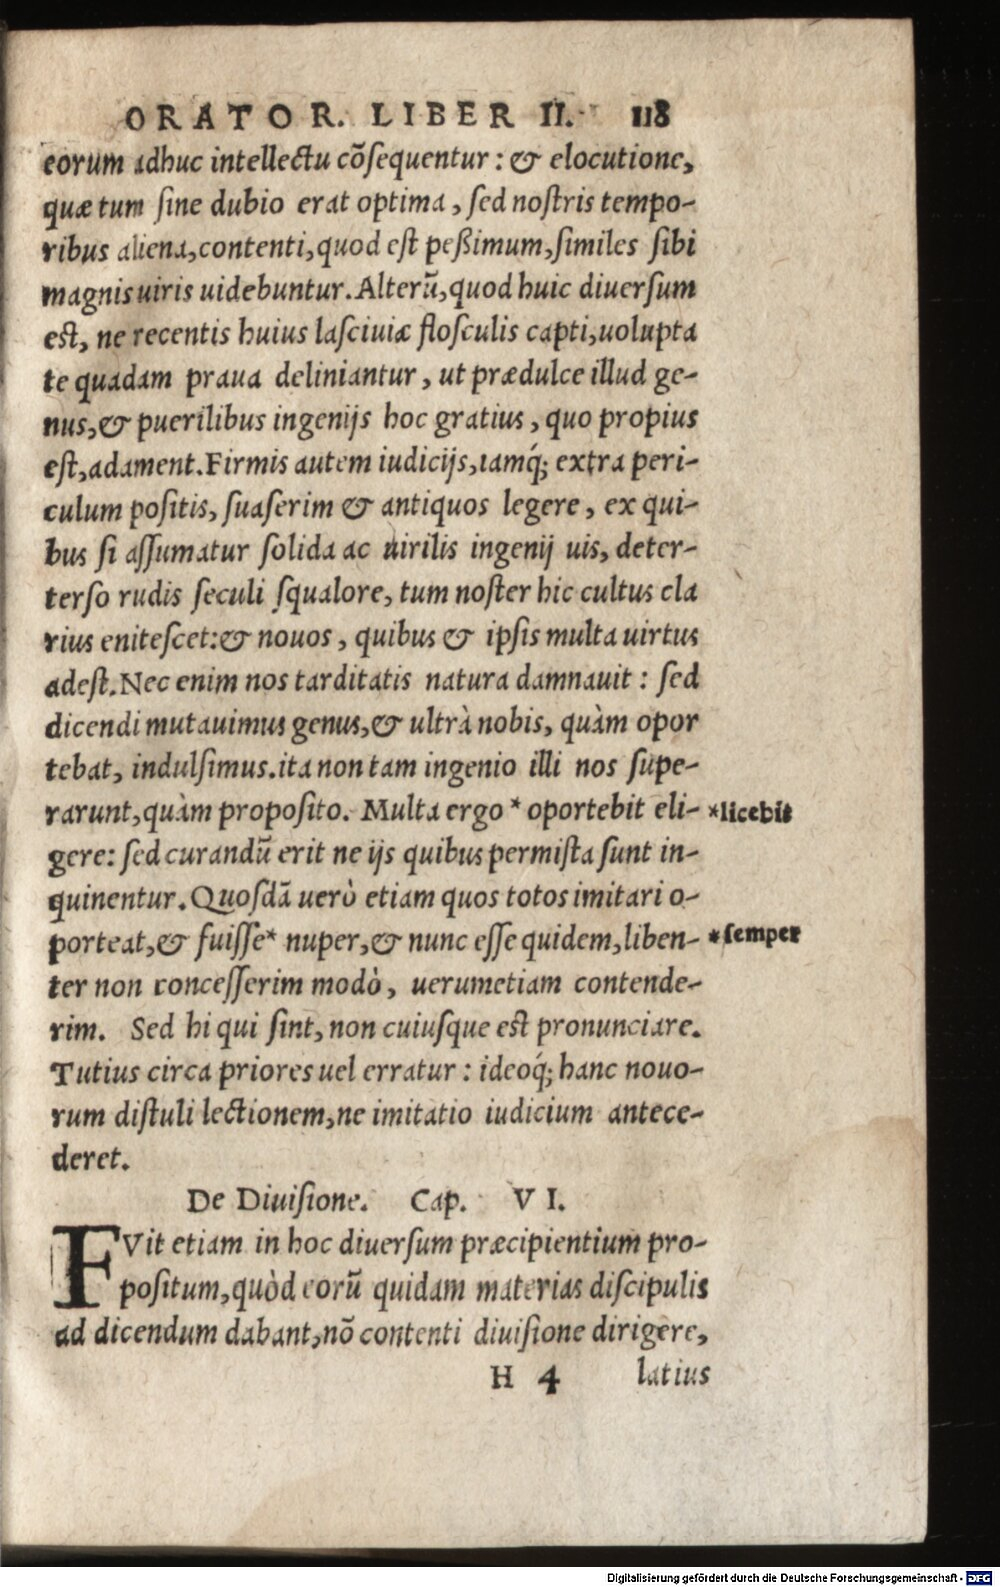 ORATOR. LIBER II. 118
eorum adhuc intellectu cõſequentur: & elocutione,
quæ tum ſine dubio erat optima, ſed noſtris tempo-
ribus aliena, contenti, quod eſt peßimum, ſimiles ſibi
magnis uiris uidebuntur. Alterũ, quod huic diuerſum
eſt, ne recentis huius laſciuiæ floſculis capti, uolupta
te quadam praua deliniantur, ut prædulce illud ge-
nus, & puerilibus ingenijs hoc gratius, quo propius
eſt, adament. Firmis autem iudicijs, iamq́; extra peri-
culum poſitis, ſuaſerim & antiquos legere, ex qui-
bus ſi aſſumatur ſolida ac uirilis ingenij uis, deter-
terſo rudis ſeculi ſqualore, tum noſter hic cultus cla
rius eniteſcet: & nouos, quibus & ipſis multa uirtus
adeſt. Nec enim nos tarditatis natura damnauit: ſed
dicendi mutauimus genus, & ultrà nobis, quàm opor
tebat, indulſimus. ita non tam ingenio illi nos ſupe-
rarunt, quàm propoſito. Multa ergo * oportebit eli- *licebit
gere: ſed curandũ erit ne ijs quibus permiſta ſunt in-
quinentur. Quoſdã uerò etiam quos totos imitari o-
porteat, & fuiſſe* nuper, & nunc eſſe quidem, liben- *ſemper
ter non conceſſerim modò, uerumetiam contende-
rim. Sed hi qui ſint, non cuiuſque eſt pronunciare.
Tutius circa priores uel erratur: ideoq́; hanc nouo-
rum diſtuli lectionem, ne imitatio iudicium antece-
deret.
De Diuiſione. Cap. VI.
FVit etiam in hoc diuerſum præcipientium pro-
poſitum, quòd eorũ quidam materias diſcipulis
ad dicendum dabant, nõ contenti diuiſione dirigere,
H 4 latius
Digitalisierung gefördert durch die Deutsche Forschungsgemeinschaft - DFG